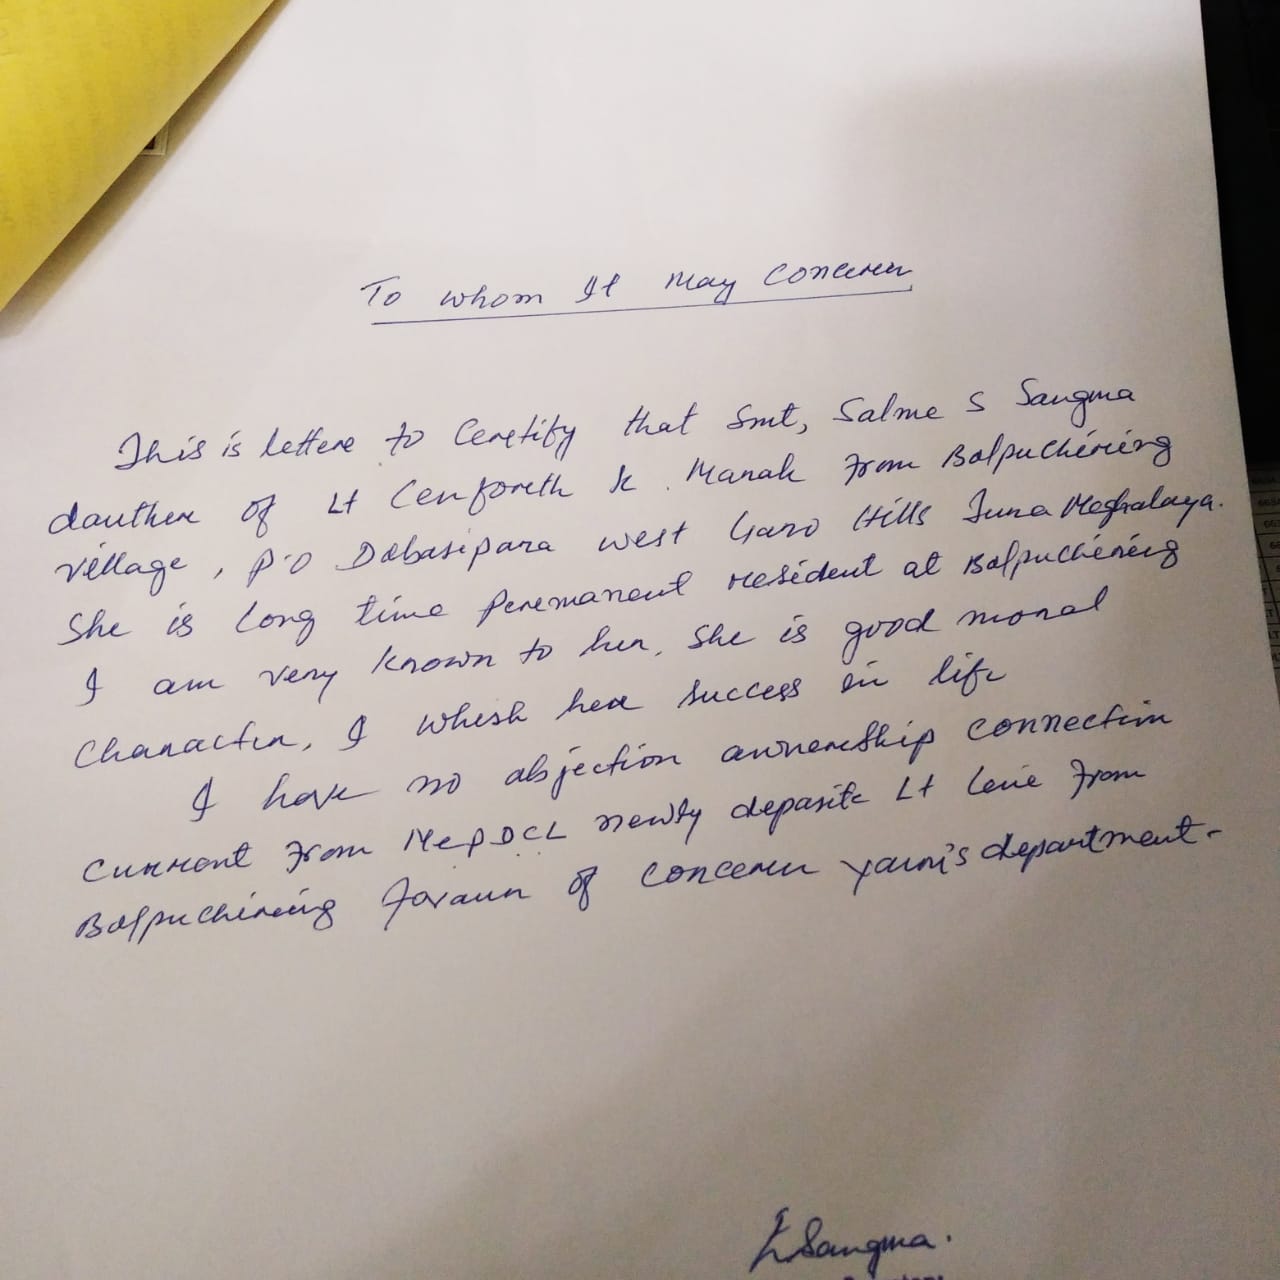 To whom It May Concern
This is lettere to Ceretify that Smt, Salme S Sangma
dauther of Lt Cenforeth K. Marak From Balpuchiring
village, P.O Dobasipara west Garo Hills Tura Meghalaya.
She is long time Peremanent resident at Balpuchiring
I am very known to her, She is good moral
Character, I whish here success in life
I have no absjection ownereship connection
Current From MePDCL newly deposite Lt Leine From
Balpuchiring favaur of Concern yaurs department.
Sangma.